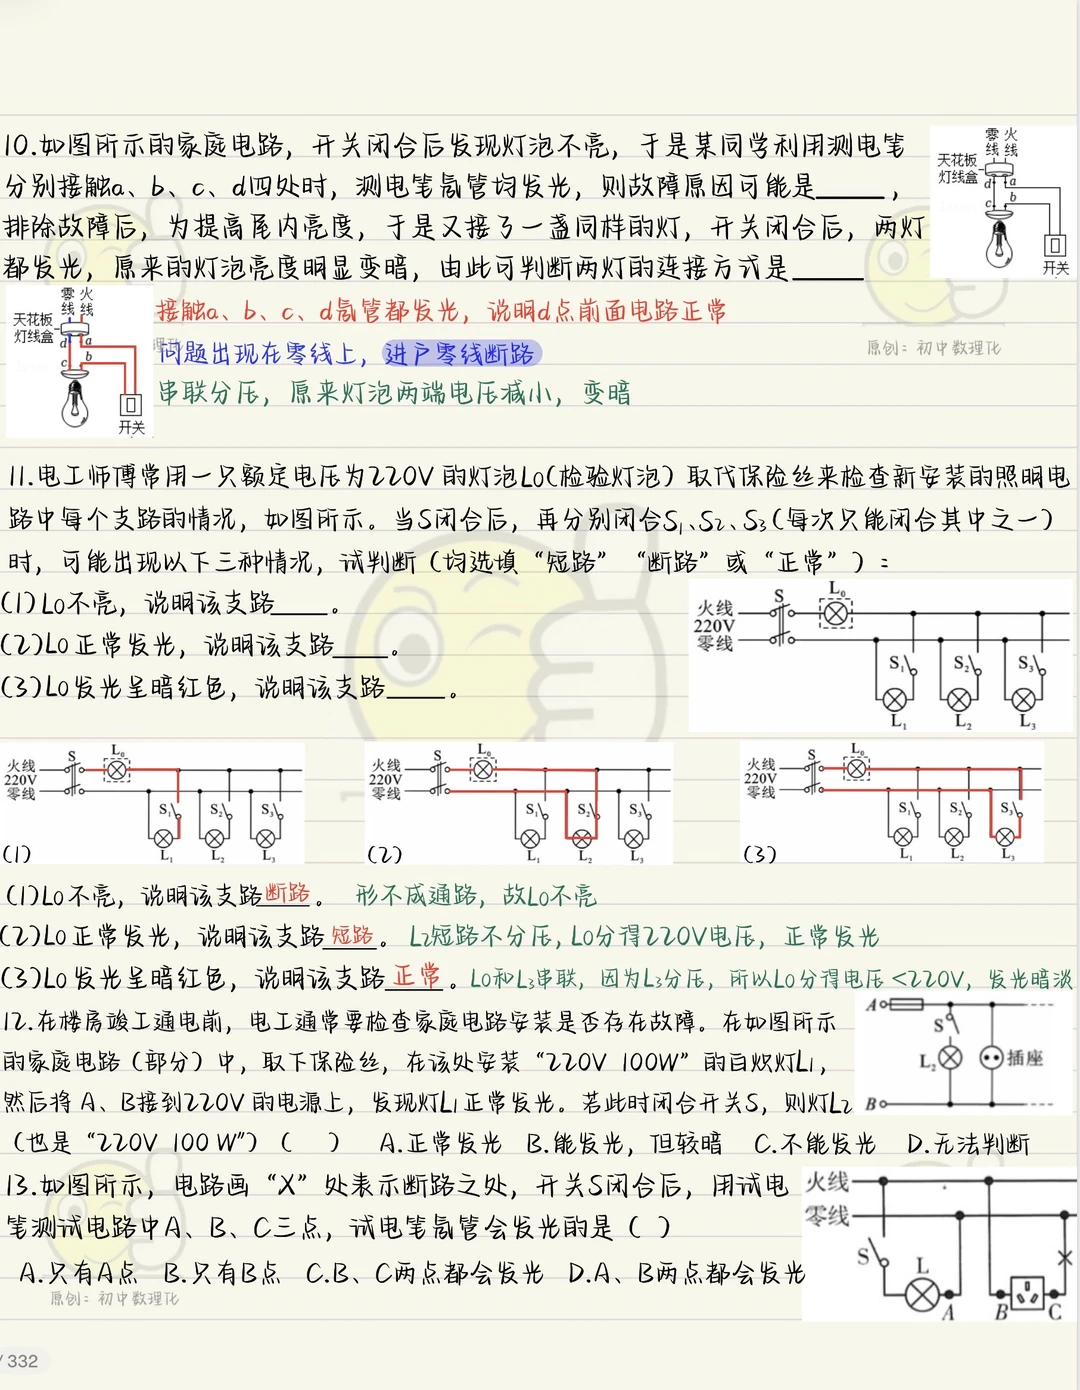 10.如图所示的家庭电路，开关闭合后发现灯泡不亮，于是某同学利用测电笔
分别接触a、b、c、d四处时，测电笔氖管均发光，则故障原因可能是_____，
排除故障后，为提高屋内亮度，于是又接了一盏同样的灯，开关闭合后，两灯
都发光，原来的灯泡亮度明显变暗，由此可判断两灯的连接方式是_____
零线 火线
天花板
灯线盒
d a
c b
开关
零线 火线
天花板
灯线盒
d a
c b
开关
接触a、b、c、d氖管都发光，说明d点前面电路正常
问题出现在零线上，进户零线断路
串联分压，原来灯泡两端电压减小，变暗
原创：初中数理化
11.电工师傅常用一只额定电压为220V的灯泡L0(检验灯泡）取代保险丝来检查新安装的照明电
路中每个支路的情况，如图所示。当S闭合后，再分别闭合S1、S2、S3(每次只能闭合其中之一）
时，可能出现以下三种情况，试判断（均选填“短路”“断路”或“正常”）：
(1)L0不亮，说明该支路____。
(2)L0正常发光，说明该支路____。
(3)L0发光呈暗红色，说明该支路____。
火线
220V
零线
S L₀
S₁ S₂ S₃
L₁ L₂ L₃
火线
220V
零线
S L₀
S₁ S₂ S₃
L₁ L₂ L₃
(1)
火线
220V
零线
S L₀
S₁ S₂ S₃
L₁ L₂ L₃
(2)
火线
220V
零线
S L₀
S₁ S₂ S₃
L₁ L₂ L₃
(3)
(1)L0不亮，说明该支路断路。 形不成通路，故L0不亮
(2)L0正常发光，说明该支路短路。 L2短路不分压，L0分得220V电压，正常发光
(3)L0发光呈暗红色，说明该支路正常。L0和L3串联，因为L3分压，所以L0分得电压<220V，发光暗淡
12.在楼房竣工通电前，电工通常要检查家庭电路安装是否存在故障。在如图所示
的家庭电路（部分）中，取下保险丝，在该处安装“220V 100W”的白炽灯L1，
然后将A、B接到220V的电源上，发现灯L1正常发光。若此时闭合开关S，则灯L2
（也是“220V 100W”）（ ） A.正常发光 B.能发光，但较暗 C.不能发光 D.无法判断
A
S
L₂ 插座
B
13.如图所示，电路画“X”处表示断路之处，开关S闭合后，用试电
笔测试电路中A、B、C三点，试电笔氖管会发光的是（ ）
A.只有A点 B.只有B点 C.B、C两点都会发光 D.A、B两点都会发光
火线
零线
S L
A B C
原创：初中数理化
/332